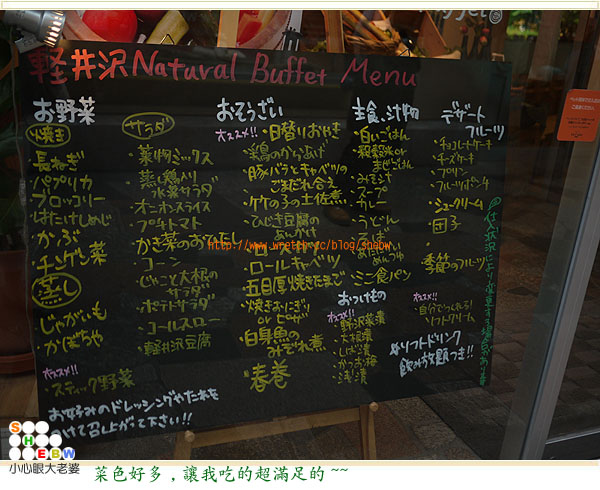 軽井沢 Natural Buffet Menu
お野菜
焼き
長ねぎ
パプリカ
ブロッコリー
かぶ
チンゲン菜
蒸し
じゃがいも
かぼちゃ
オススメ!!
スティック野菜
お好みのドレッシングやたれを
つけて召し上がって下さい!!
サラダ
葉物ミックス
蒸し鶏入り
水菜サラダ
オニオンスライス
プチトマト
かき菜のおひたし
コーン
じゃこと大根の
サラダ
ポテトサラダ
コールスロー
軽井沢豆腐
おそうざい
オススメ!!
日替りおやき
若鶏のからあげ
豚バラとキャベツの
ごまだれ合え
竹の子の土佐煮
ひじき豆腐の
あんかけ
ロールキャベツ
五目厚焼きたまご
焼きおにぎり
or ピザ
白身魚の
みぞれ煮
春巻
主食、汁物
白いごはん
雑穀米or
まぜごはん
みそ汁
スープ
カレー
うどん
そば
ミニ食パン
おつけもの
オススメ!!
野沢菜漬
大根漬
しば漬
かつお梅
浅漬
デザート
フルーツ
チョコレートケーキ
チーズケーキ
プリン
フルーツポンチ
シュークリーム
団子
季節のフルーツ
オススメ!!
自分でつくれる!
ソフトクリーム
ソフトドリンク
飲み放題つき!!
仕入状況により変更する場合があります
http://www.wretch.cc/blog/shebw
SHEBW
小心眼大老婆
菜色好多，讓我吃的超滿足的 ~~